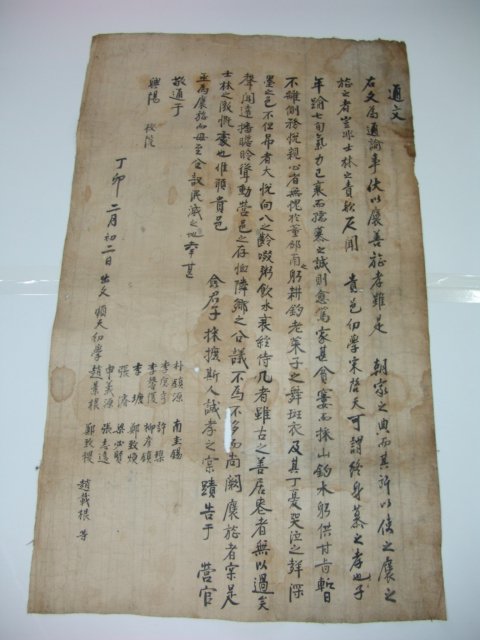 通文
右文爲通諭事伏以褒善旌孝雖是 朝家之典而其所以使之褒之
旌之者豈非士林之責歟仄聞 貴邑幼學宋啓天可謂終身慕之孝也年
年踰七旬氣力已衰而孺慕之誠則愈篤家甚貧窶而採山釣水躬供甘旨暫日
不離側務悅親心省無愧於董邵南躬耕釣老萊子之舞班衣及其丁憂哭泣之聲深
墨之色不但吊者大悅向八之齡啜粥飮水衰絰侍几者雖古之善居喪者無以過矣
聲聞遠播瞻聆聳動營邑之存恤隣鄕之公議不爲不多而尙闕褒旌者寔是
士林之慨歎處也惟願貴邑 僉君子採摭斯人誠孝之實蹟告于 營官
至爲褒旌而毋至 泯滅之地幸甚
敬通于
興陽 校院
丁卯二月初二日 出文 順天幼學
朴 源 南圭錫
李 許
李 馥 柳 鎭
李 塘 鄭致煥
張 濬 梁必賢
申義源 張志遠
趙景根 鄭致稷
趙 根 等